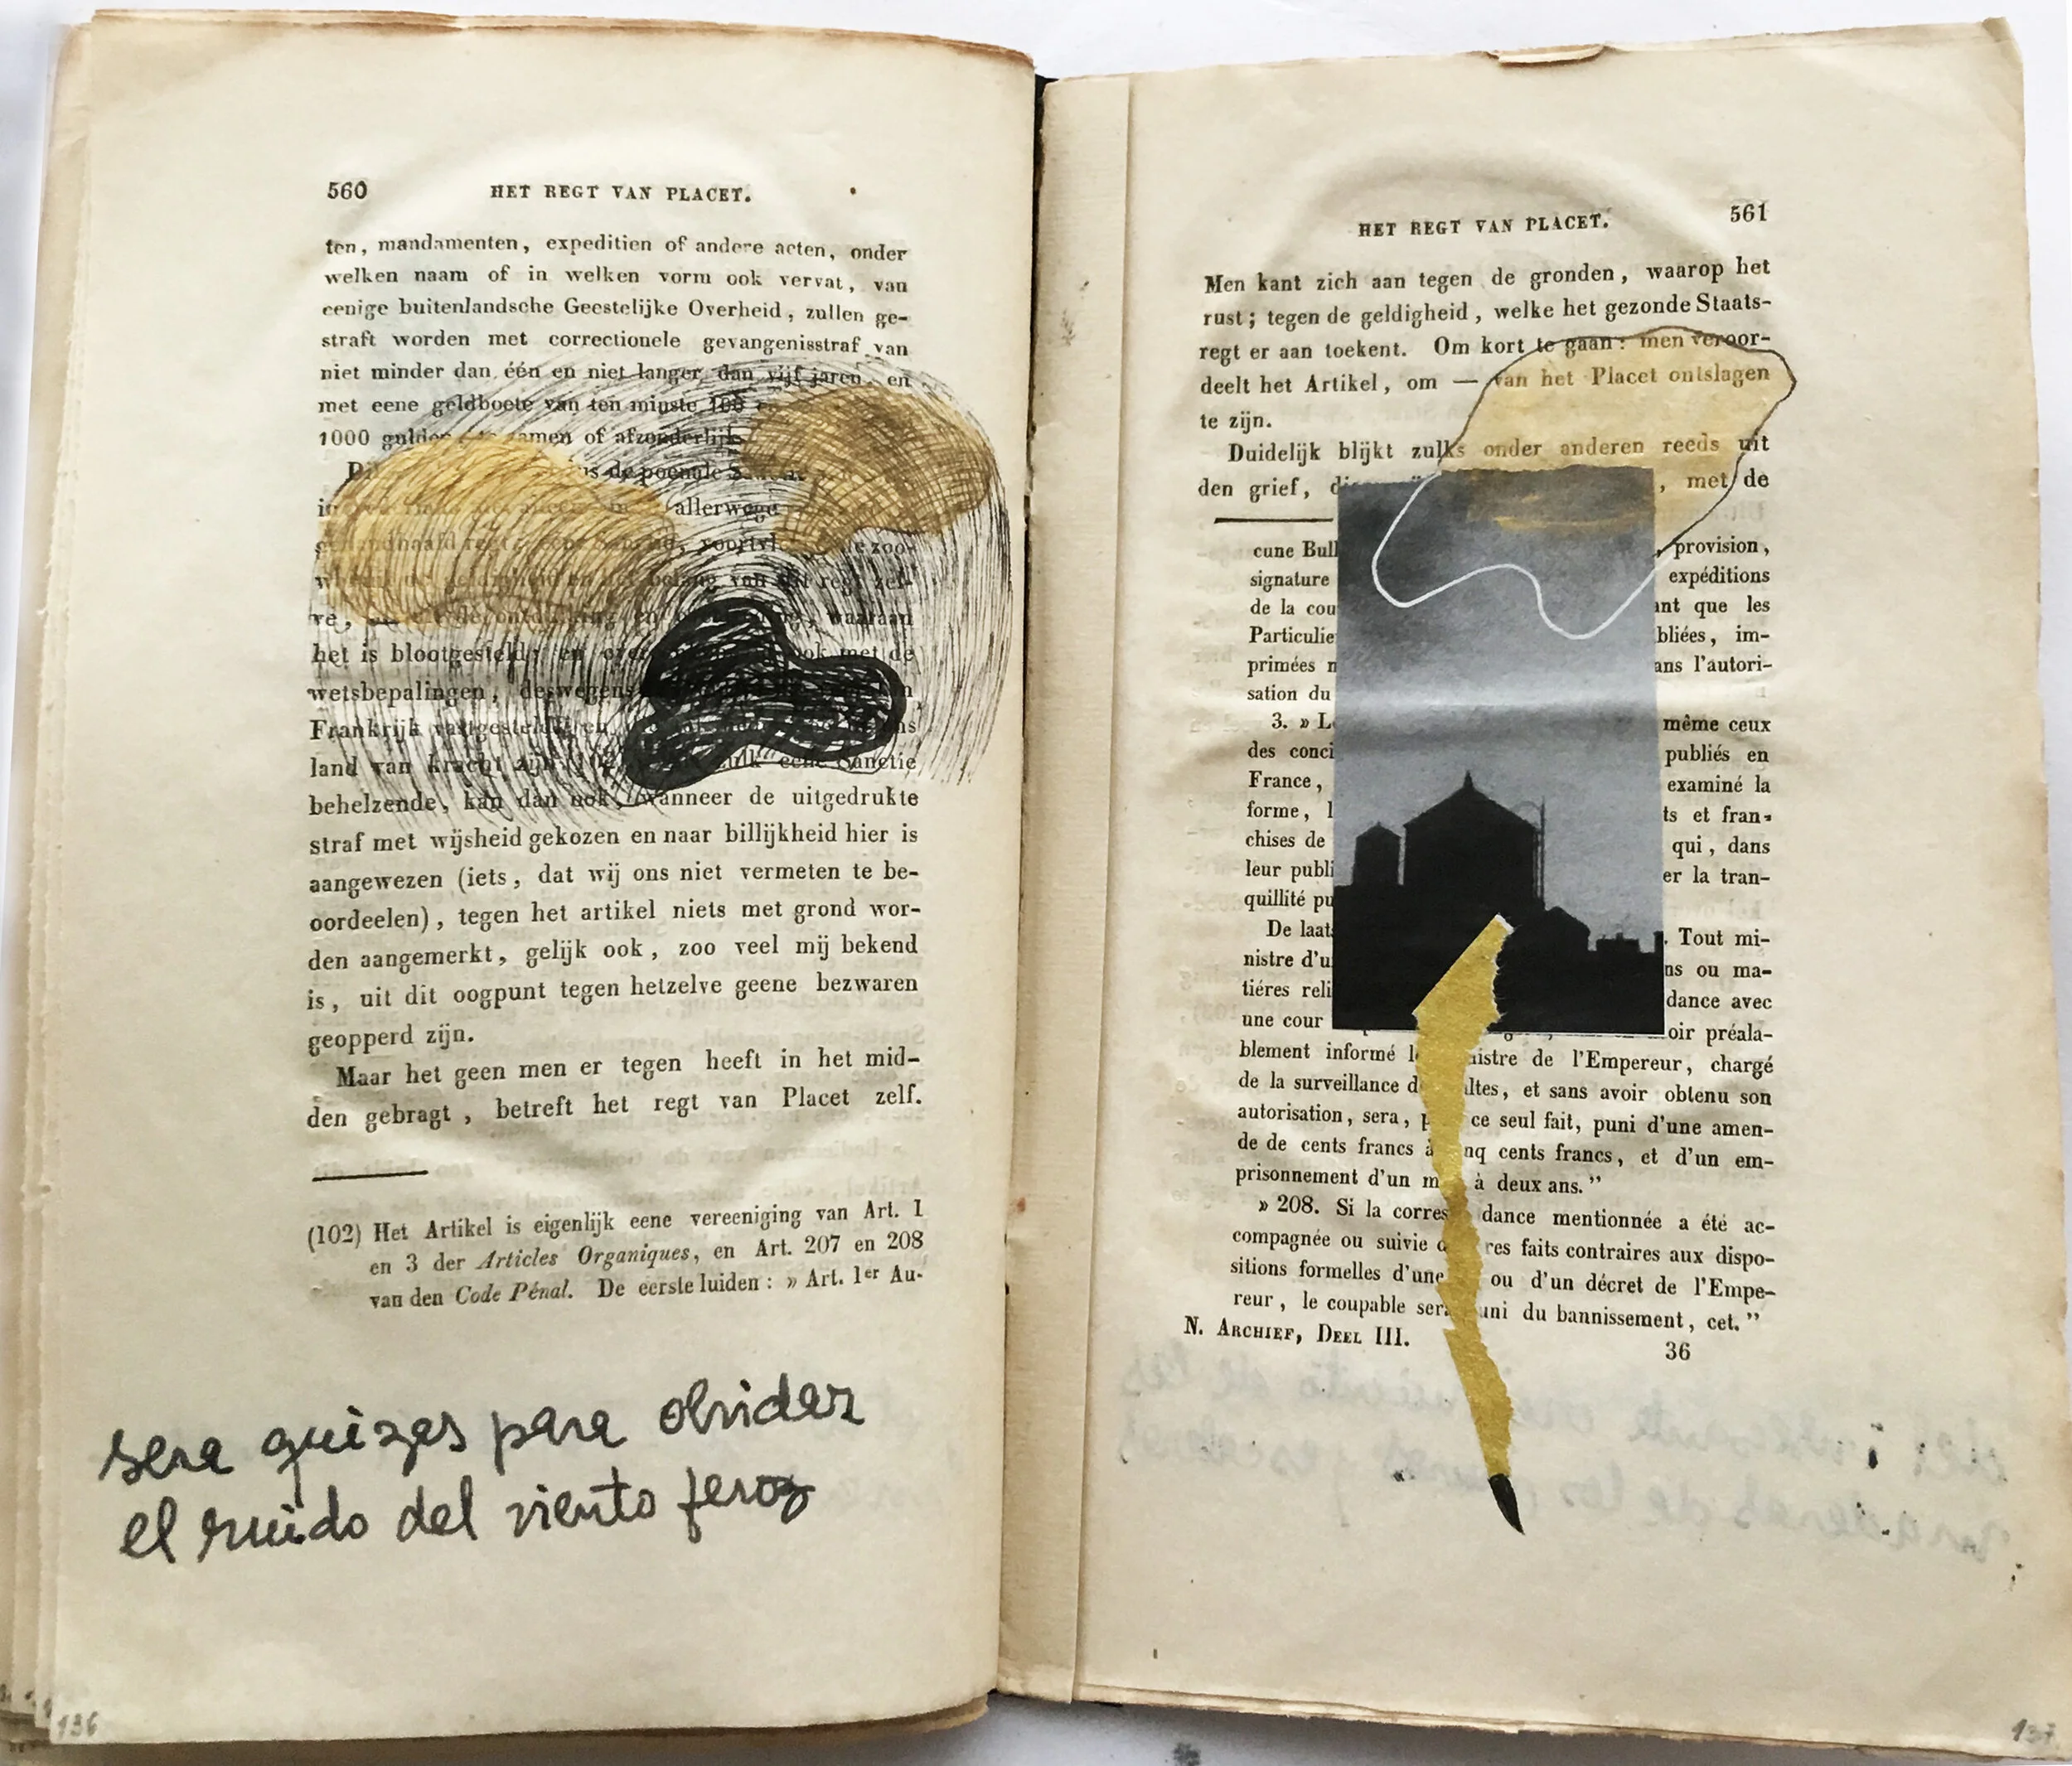 560 HET REGT VAN PLACET.
ten, mandamenten, expeditien of andere acten, onder
welken naam of in welken vorm ook vervat, van
eenige buitenlandsche Geestelijke Overheid, zullen ge-
straft worden met correctionele gevangenisstraf van
niet minder dan één en niet langer dan vijf jaren, en
met eene geldboete van ten minste 100
1000 gulden, te zamen of afzonderlijk
de poenale
allerwege
gehandhaafd regt, eene Sanctie, zoo-
en het belang van dit regt zel-
ve, waaraan
het is blootgesteld; en ook met de
wetsbepalingen, deswegens
Frankrijk vastgesteld, en ons
land van kracht zijn zulk eene Sanctie
behelzende, kan dan ook, wanneer de uitgedrukte
straf met wijsheid gekozen en naar billijkheid hier is
aangewezen (iets, dat wij ons niet vermeten te be-
oordeelen), tegen het artikel niets met grond wor-
den aangemerkt, gelijk ook, zoo veel mij bekend
is, uit dit oogpunt tegen hetzelve geene bezwaren
geopperd zijn.
Maar het geen men er tegen heeft in het mid-
den gebragt, betreft het regt van Placet zelf.
(102) Het Artikel is eigenlijk eene vereeniging van Art. 1
en 3 der Articles Organiques, en Art. 207 en 208
van den Code Pénal. De eerste luiden: » Art. 1er Au-
sera quizas para olvidar
el ruido del viento feroz
136
HET REGT VAN PLACET. 561
Men kant zich aan tegen de gronden, waarop het
rust; tegen de geldigheid, welke het gezonde Staats-
regt er aan toekent. Om kort te gaan: men veroor-
deelt het Artikel, om — van het Placet ontslagen
te zijn.
Duidelijk blijkt zulks onder anderen reeds uit
den grief, , met de
cune Bull provision,
signature expéditions
de la cou ant que les
Particulie bliées, im-
primées n ans l'autori-
sation du
3. » L même ceux
des conci publiés en
France, examiné la
forme, l ts et fran-
chises de qui, dans
leur publi er la tran-
quillité pu
De laat . Tout mi-
nistre d'u ns ou ma-
tiéres reli dance avec
une cour oir préala-
blement informé l istre de l'Empereur, chargé
de la surveillance d ltes, et sans avoir obtenu son
autorisation, sera, p ce seul fait, puni d'une amen-
de de cents francs à nq cents francs, et d'un em-
prisonnement d'un m à deux ans."
» 208. Si la corres dance mentionnée a été ac-
compagnée ou suivie d res faits contraires aux dispo-
sitions formelles d'une ou d'un décret de l'Empe-
reur, le coupable sera uni du bannissement, cet."
N. ARCHIEF, DEEL III. 36
137